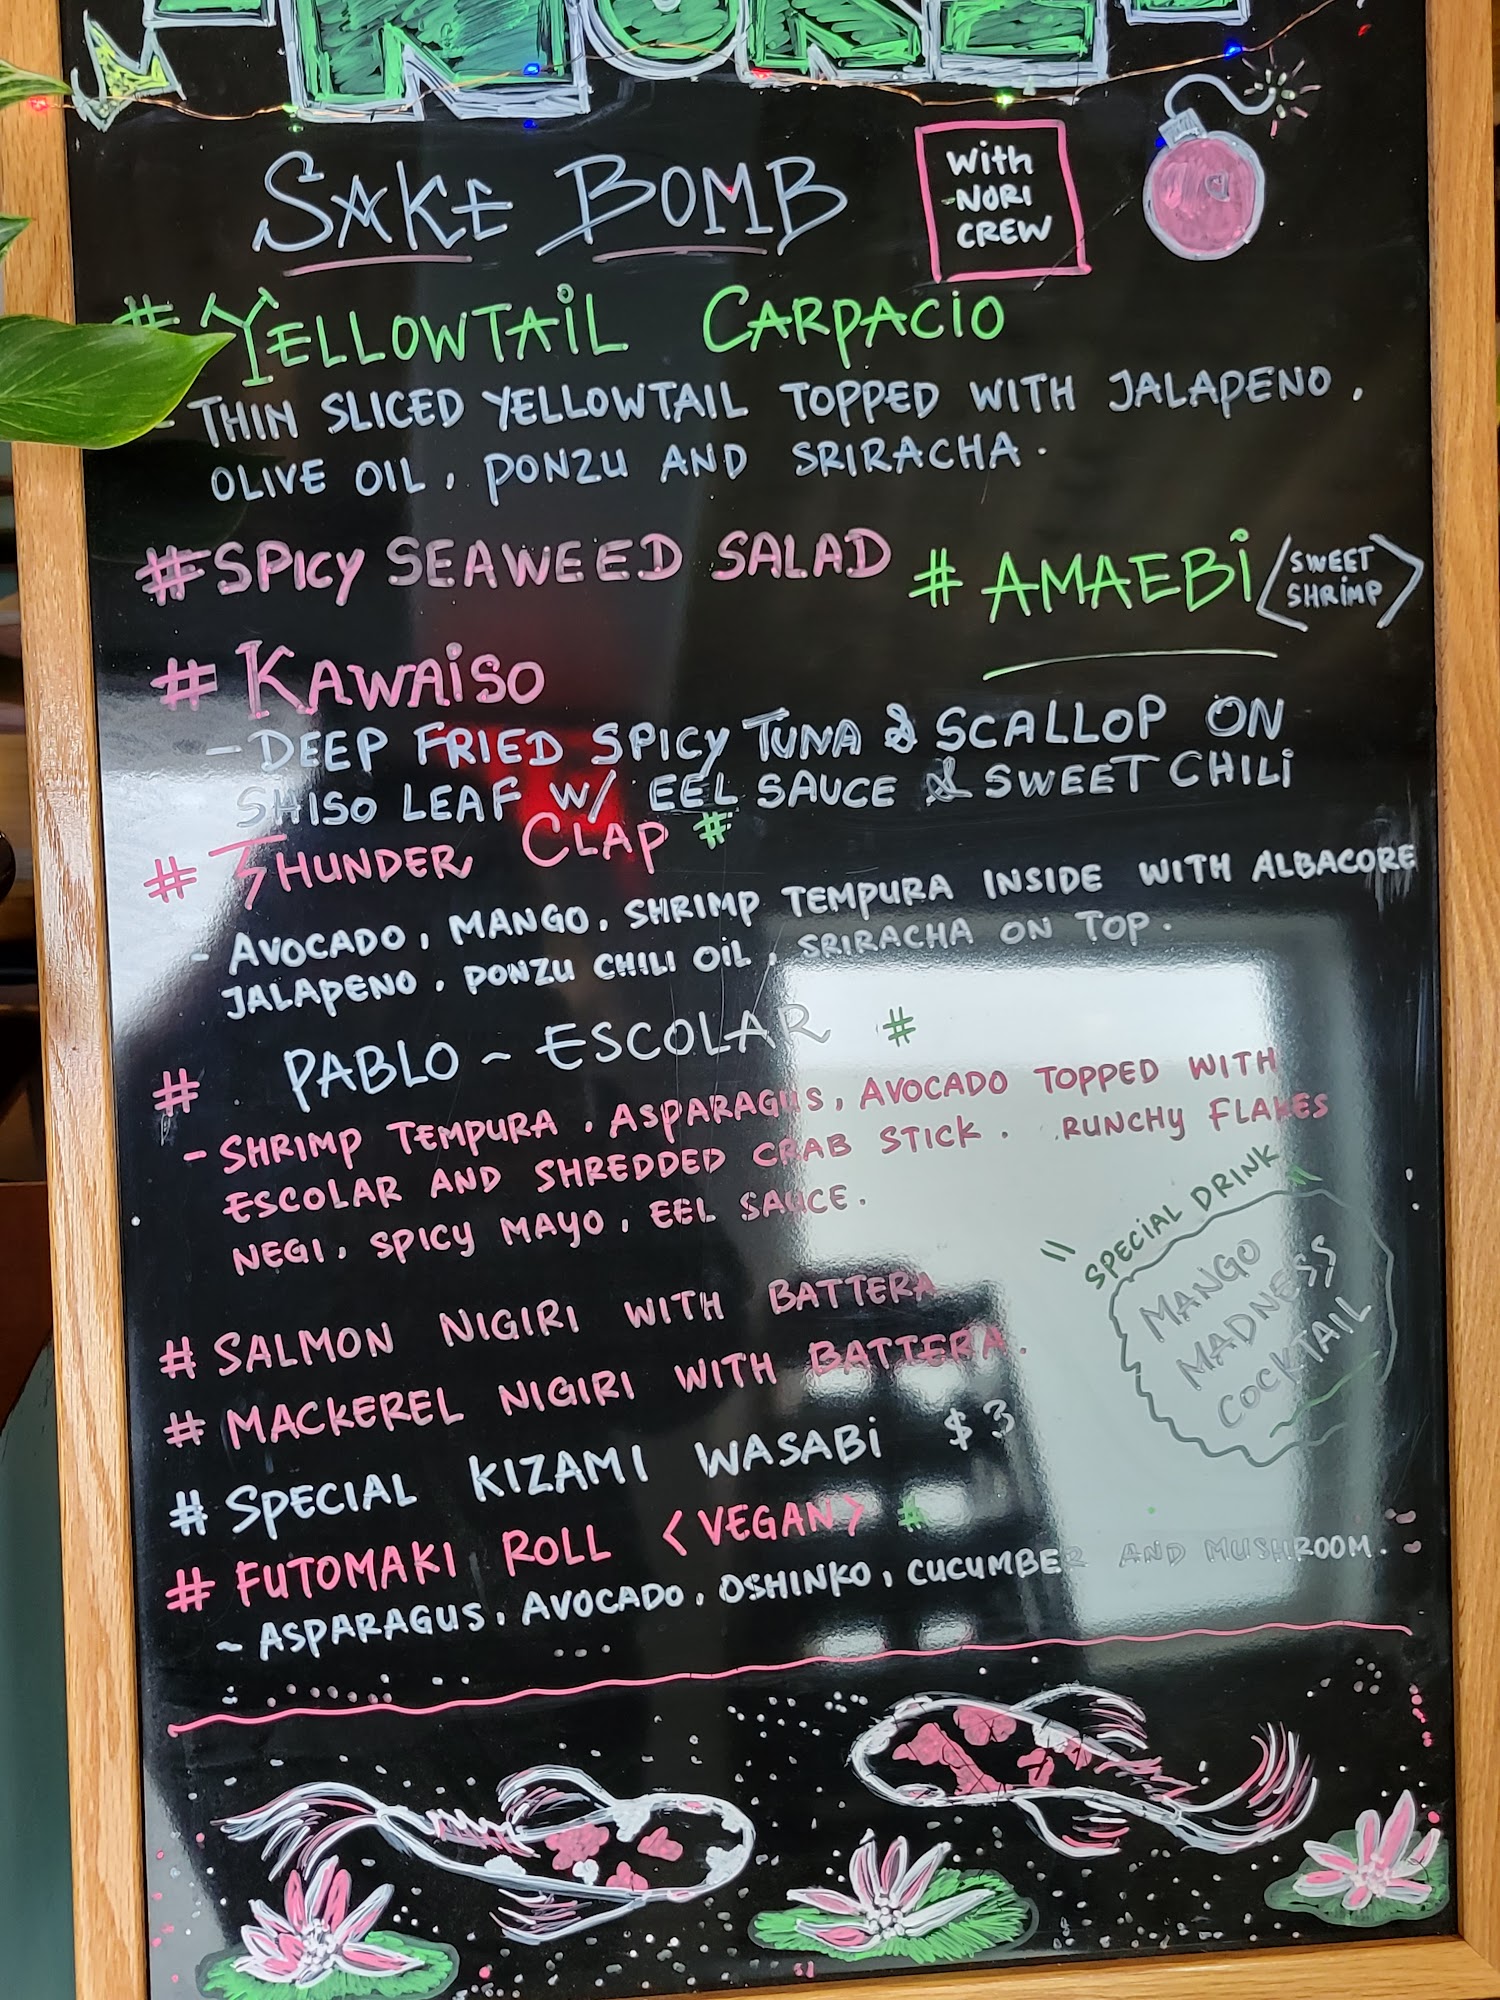 SAKE BOMB
With
NORI
CREW
# YELLOWTAIL CARPACIO
- THIN SLICED YELLOWTAIL TOPPED WITH JALAPENO,
OLIVE OIL, PONZU AND SRIRACHA.
# SPICY SEAWEED SALAD
# AMAEBI <SWEET
SHRIMP>
# KAWAISO
- DEEP FRIED SPICY TUNA & SCALLOP ON
SHISO LEAF W/ EEL SAUCE & SWEET CHILI
# THUNDER CLAP #
- AVOCADO, MANGO, SHRIMP TEMPURA INSIDE WITH ALBACORE
JALAPENO, PONZU CHILI OIL, SRIRACHA ON TOP.
# PABLO ~ ESCOLAR #
- SHRIMP TEMPURA, ASPARAGUS, AVOCADO TOPPED WITH
ESCOLAR AND SHREDDED CRAB STICK. RUNCHY FLAKES
NEGI, SPICY MAYO, EEL SAUCE.
" SPECIAL DRINK "
MANGO
MADNESS
COCKTAIL
# SALMON NIGIRI WITH BATTERA
# MACKEREL NIGIRI WITH BATTERA.
# SPECIAL KIZAMI WASABI $3
# FUTOMAKI ROLL <VEGAN> #
~ ASPARAGUS, AVOCADO, OSHINKO, CUCUMBER AND MUSHROOM.